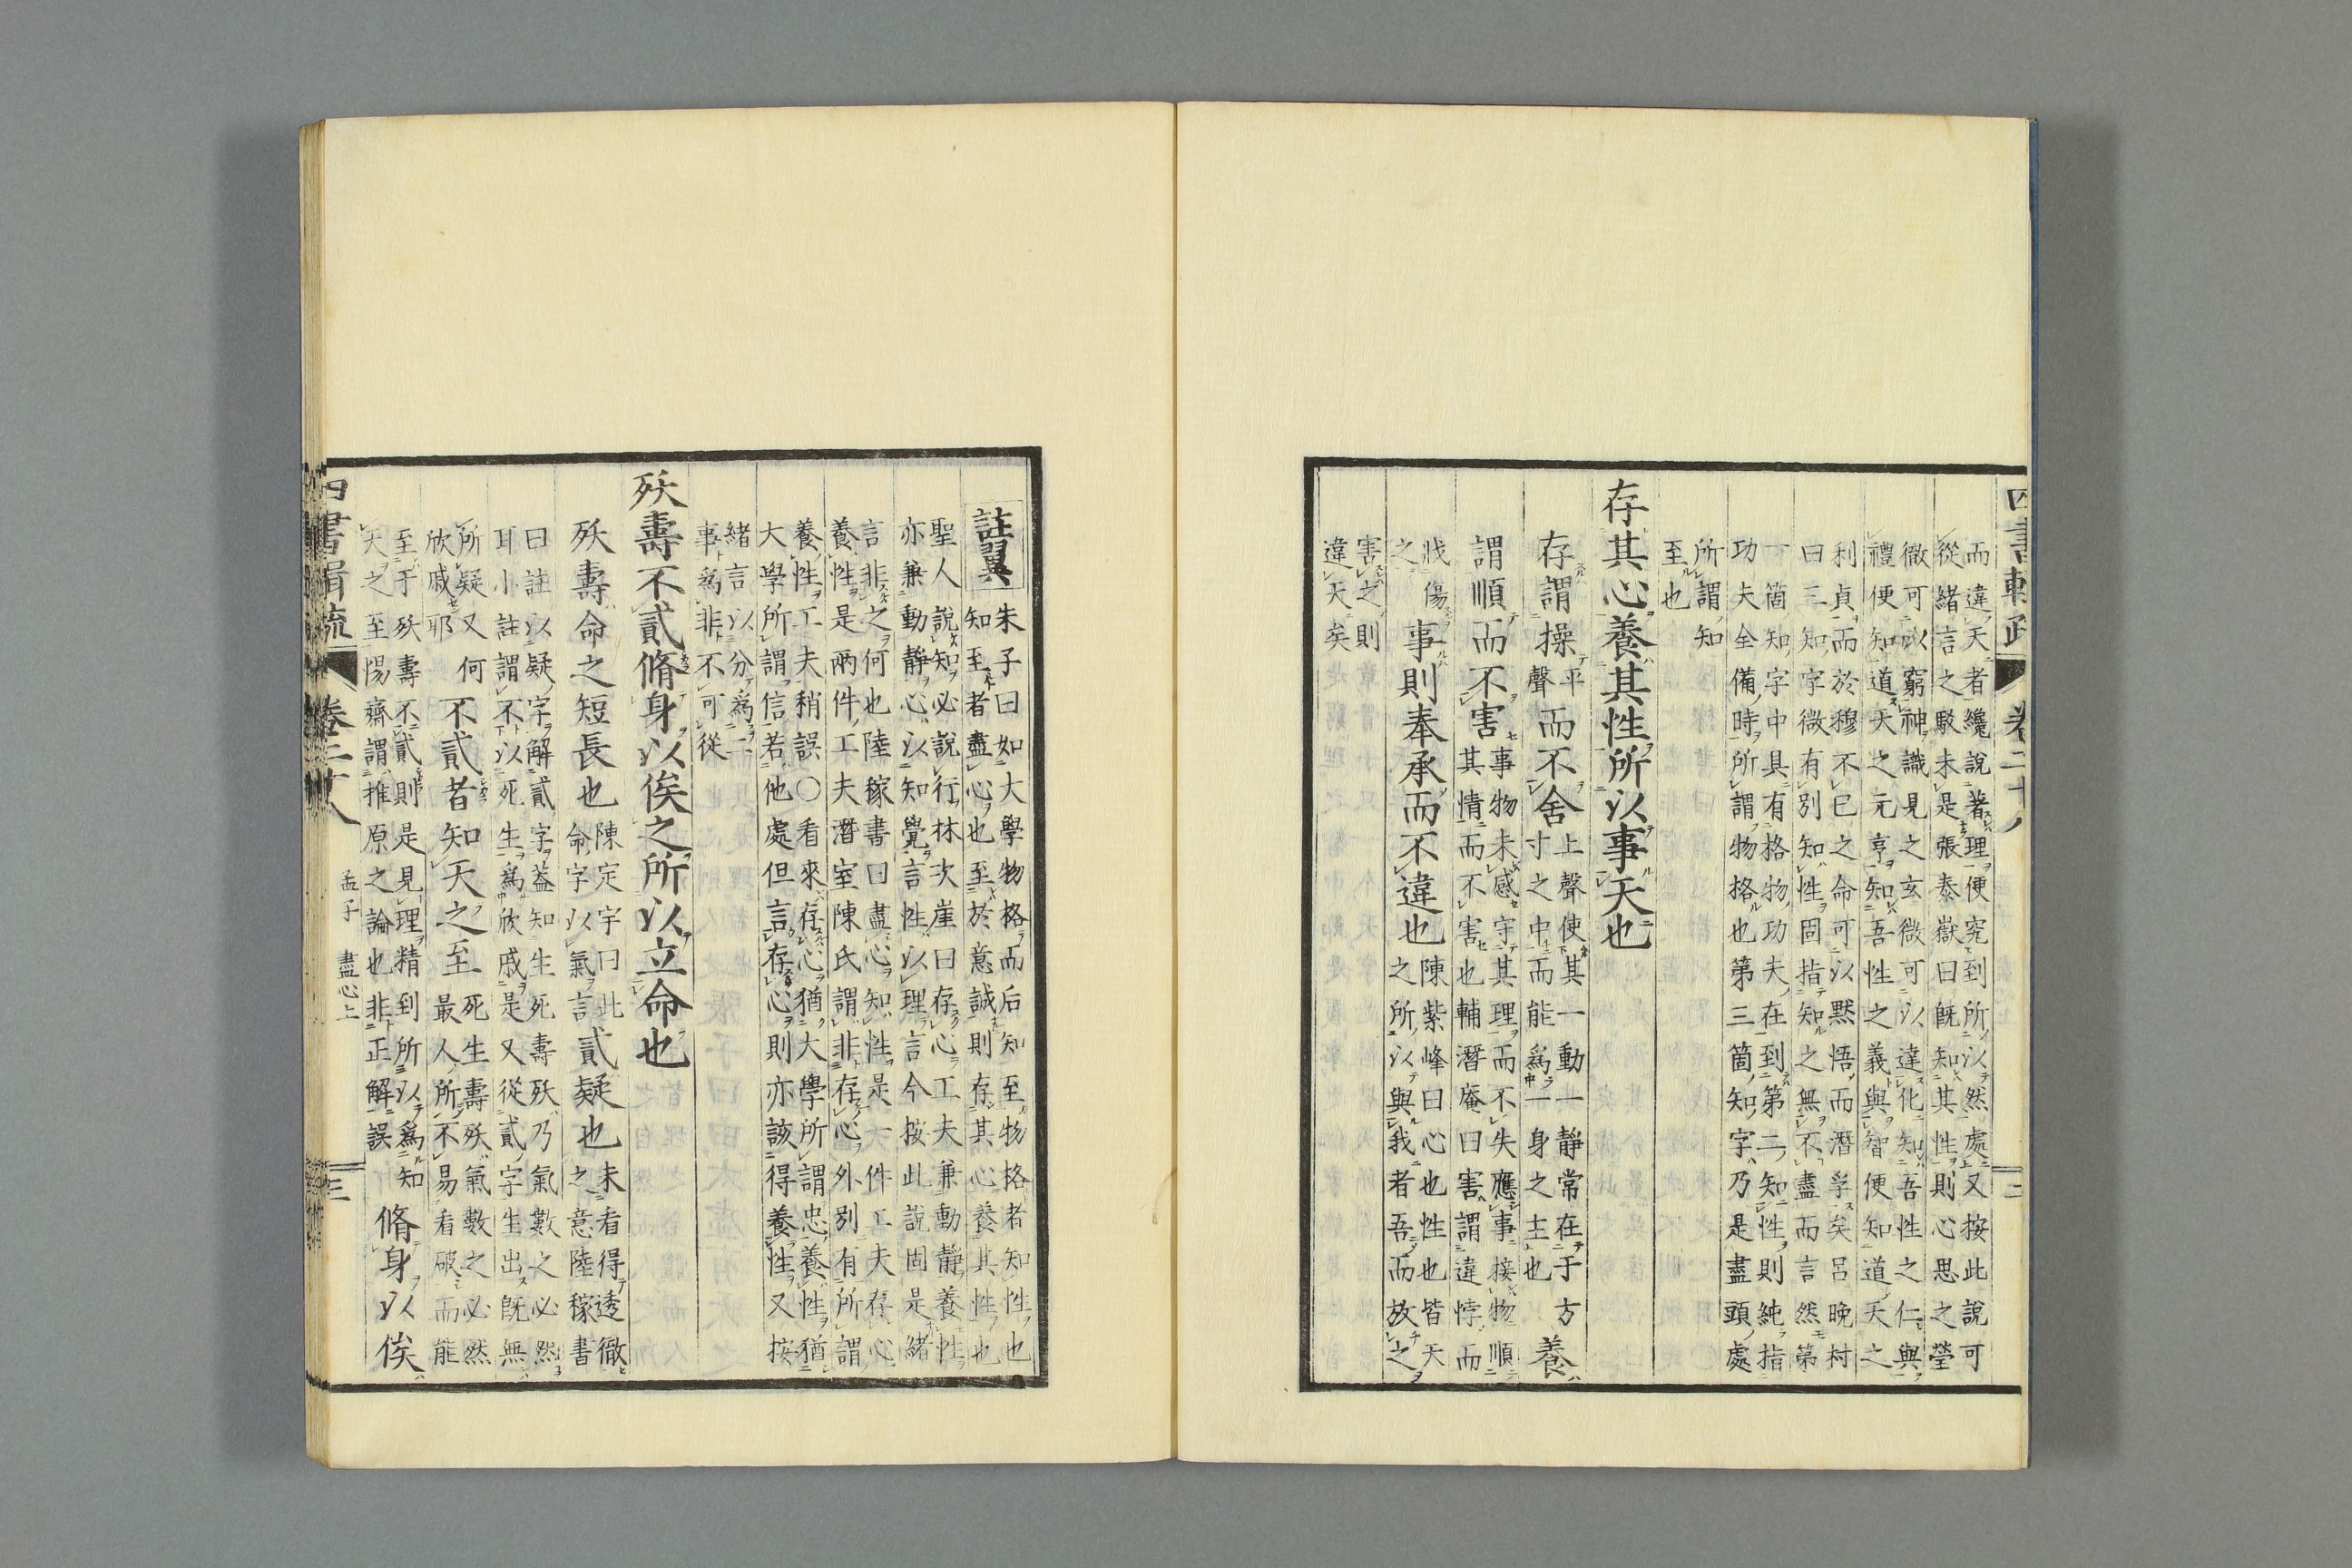 四書輯疏 卷二十八 二
而違天者纔說著理便究到所以然處又按此說可
從緒言之駁未是張泰嶽曰既知其性則心思之瑩
徹可以窮神識見之玄微可以達化知吾性之仁與
禮便知道天之元亨知吾性之義與智便知道天之
利貞而於穆不已之命可以默悟而潛孚矣呂晚村
曰三知字微有別知性固指知之無不盡而言然第
一箇知字中具有格物功夫在到第二知性則純指
功夫全備時所謂物格也第三箇知字乃是盡頭處
所謂知
至也
存其心養其性所以事天也
存謂操平聲而不舍上聲使其一動一靜常在于方寸之中而能為一身之主也養
謂順而不害事物未感守其理而不失應事接物順其情而不害也輔潛庵曰害謂違悖而
戕傷之事則奉承而不違也陳紫峰曰心也性也皆天之所以與我者吾而放之
害之則
違天矣
註翼
朱子曰如大學物格而后知至物格者知性也
知至者盡心也至於意誠則存其心養其性也
聖人說知必說行林次崖曰存心工夫兼動靜養性
亦兼動靜心以知覺言性以理言今按此說固是緒
言非之何也陸稼書曰盡心知性是一件工夫存心
養性是兩件工夫潛室陳氏謂非存心外別有所謂
養性工夫稍誤〇看來存心猶大學所謂忠養性猶
大學所謂信若他處但言存心則亦該得養性又按
緒言以分為二
事為非不可從
殀壽不貳脩身以俟之所以立命也
殀壽命之短長也陳定宇曰此命字以氣言貳疑也未看得透徹之意陸稼書
曰註以疑字解貳字蓋知生死壽殀乃氣數之必然
耳小註謂不以死生為欣戚是又從貳字生出既無
所疑又何欣戚耶不貳者知天之至死生壽殀氣數之必然最人所不易看破而能
至于殀壽不貳則是見理精到所以為知天之至惕齋謂推原之論也非正解誤脩身以俟
四書輯疏 卷二十八 孟子 盡心上 三